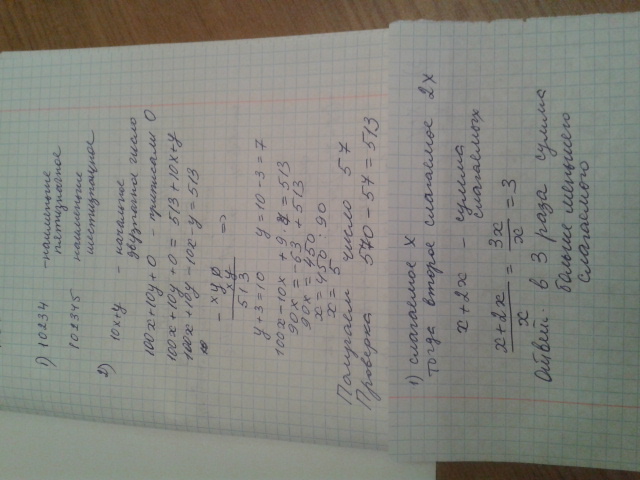 1) 10234 - наименьшее
пятизначное
102345 наименьшее
шестизначное
2) 10x+y - начальное
двузначное число
100x+10y+0 - приписали 0
100x+10y+0 = 513+10x+y
100x+10y-10x-y=513
- xy0
xy
513
=>
y+3=10 y=10-3=7
100x-10x+9·7=513
90x=-63+513
90x=450
x=450:90
x=5
Получаем число 57
Проверка 570-57=513
1) слагаемое x
тогда второе слагаемое 2x
x+2x - сумма
слагаемых
x+2x/x = 3x/x = 3
Ответ: в 3 раза сумма
больше меньшего
слагаемого